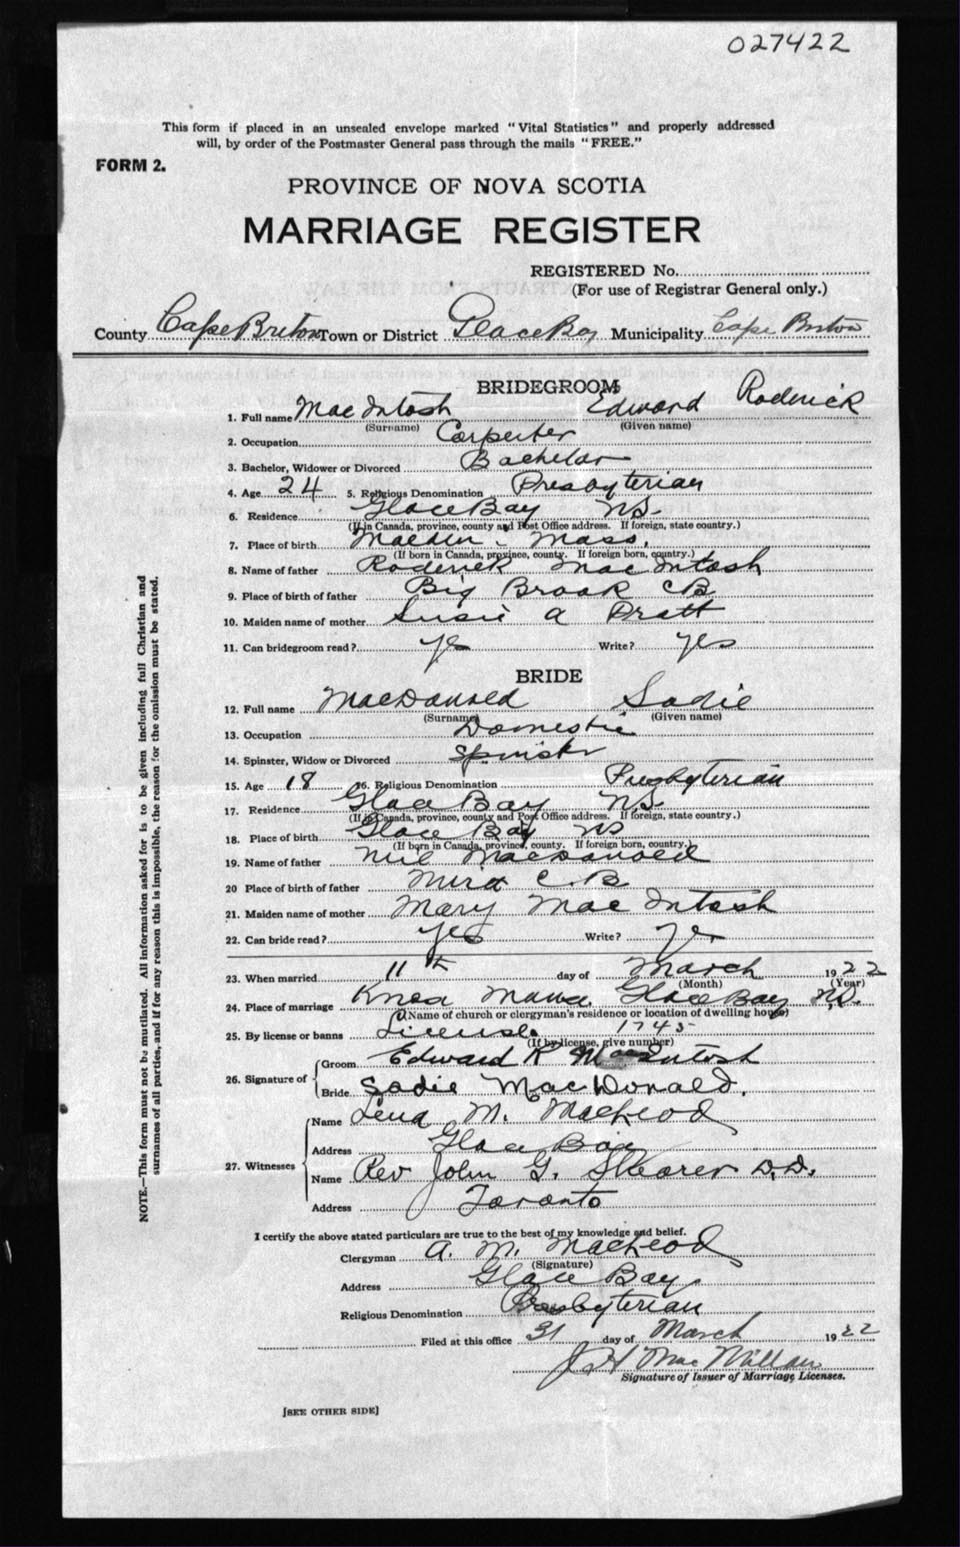 027422
This form if placed in an unsealed envelope marked "Vital Statistics" and properly addressed
will, by order of the Postmaster General pass through the mails "FREE."
FORM 2.
PROVINCE OF NOVA SCOTIA
MARRIAGE REGISTER
REGISTERED No.
(For use of Registrar General only.)
County Cape Breton Town or District Glace Bay Municipality Cape Breton
BRIDEGROOM
1. Full name MacIntosh Edward Roderick
(Surname) (Given name)
2. Occupation Carpenter
3. Bachelor, Widower or Divorced Bachelor
4. Age 24 5. Religious Denomination Presbyterian
6. Residence Glace Bay NS.
(If in Canada, province, county and Post Office address. If foreign, state country.)
7. Place of birth Malden Mass.
(If born in Canada, province, county. If foreign born, country.)
8. Name of father Roderick MacIntosh
9. Place of birth of father Big Brook CB
10. Maiden name of mother Susie A Pratt
11. Can bridegroom read? yes Write? yes
BRIDE
12. Full name MacDonald Sadie
(Surname) (Given name)
13. Occupation Domestic
14. Spinster, Widow or Divorced Spinster
15. Age 18 16. Religious Denomination Presbyterian
17. Residence Glace Bay NS
(If in Canada, province, county and Post Office address. If foreign, state country.)
18. Place of birth Glace Bay NS
(If born in Canada, province, county. If foreign born, country.)
19. Name of father Neil MacDonald
20 Place of birth of father Mira C.B
21. Maiden name of mother Mary MacIntosh
22. Can bride read? yes Write? yes
23. When married 11th day of March 1922
(Month) (Year)
24. Place of marriage Knox Manse Glace Bay N.S.
(Name of church or clergyman's residence or location of dwelling house)
25. By license or banns License 1745
(If by license, give number)
26. Signature of Groom Edward R MacIntosh
Bride Sadie MacDonald.
27. Witnesses Name Lena M. MacLeod
Address Glace Bay
Name Rev John G. Shearer D.D.
Address Toronto
I certify the above stated particulars are true to the best of my knowledge and belief.
Clergyman A. M. MacLeod
(Signature)
Address Glace Bay
Religious Denomination Presbyterian
Filed at this office 31 day of March 1922
J H MacMillan
Signature of Issuer of Marriage Licenses.
[SEE OTHER SIDE]
NOTE.—This form must not be mutilated. All information asked for is to be given including full Christian and
surnames of all parties, and if for any reason this is impossible, the reason for the omission must be stated.